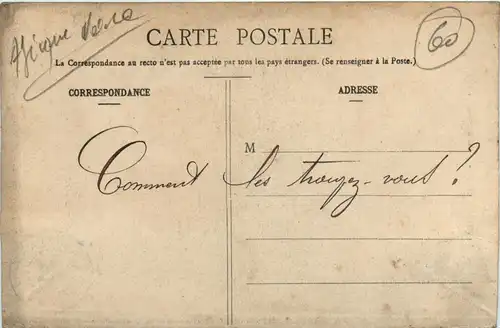 Afrique
60
CARTE POSTALE
La Correspondance au recto n'est pas acceptée par tous les pays étrangers. (Se renseigner à la Poste.)
CORRESPONDANCE
ADRESSE
M
Comment les trouvez-vous?